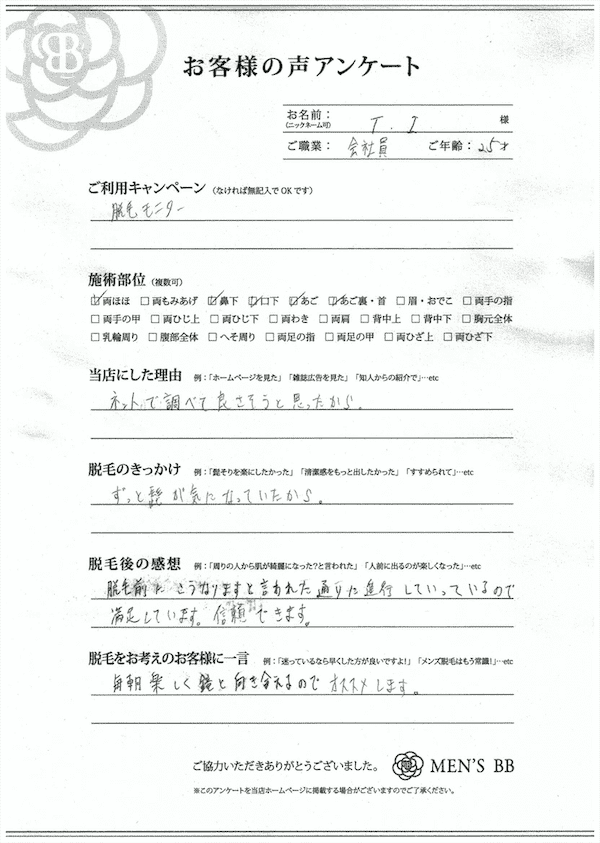 BB
お客様の声アンケート
お名前：(ニックネーム可) T. I 様
ご職業： 会社員 ご年齢：25才
ご利用キャンペーン（なければ無記入でOKです）
脱毛モニター
施術部位（複数可）
☑両ほほ ☐両もみあげ ☑鼻下 ☑口下 ☑あご ☑あご裏・首 ☐眉・おでこ ☐両手の指
☐両手の甲 ☐両ひじ上 ☐両ひじ下 ☐両わき ☐両肩 ☐背中上 ☐背中下 ☐胸元全体
☐乳輪周り ☐腹部全体 ☐へそ周り ☐両足の指 ☐両足の甲 ☐両ひざ上 ☐両ひざ下
当店にした理由 例：「ホームページを見た」「雑誌広告を見た」「知人からの紹介で」…etc
ネットで調べて良さそうと思ったから。
脱毛のきっかけ 例：「髭そりを楽にしたかった」「清潔感をもっと出したかった」「すすめられて」…etc
ずっと髭が気になっていたから。
脱毛後の感想 例：「周りの人から肌が綺麗になった？と言われた」「人前に出るのが楽しくなった」…etc
脱毛前にこうなりますと言われた通りに進行していっているので
満足しています。信頼できます。
脱毛をお考えのお客様に一言 例：「迷っているなら早くした方が良いですよ！」「メンズ脱毛はもう常識！」…etc
毎朝楽しく鏡と向き合えるのでオススメします。
ご協力いただきありがとうございました。 MEN'S BB
※このアンケートを当店ホームページに掲載する場合がございますのでご了承ください。